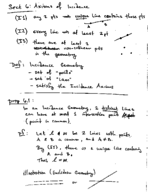 Sect 6: Axioms of Incidence
(I1) any 2 pts unique line contains those pts
(I2) every line has at least 2 pt
(I3) there are at least 3 noncollinear pts in the geometry
Def: Incidence Geometry
- set of "points"
- set of "lines"
- satisfying the Incidence Axioms
Prop 6.1:
In an Incidence Geometry, 2 distinct lines
can have at most 1 point
(point in common).
Pf: Let l ≠ m be 2 lines with points
A ≠ B in common, and A ≠ B.
By (I1), there is a unique line containing
A and B,
Thus l = m
illustration (Incidence Geometry)